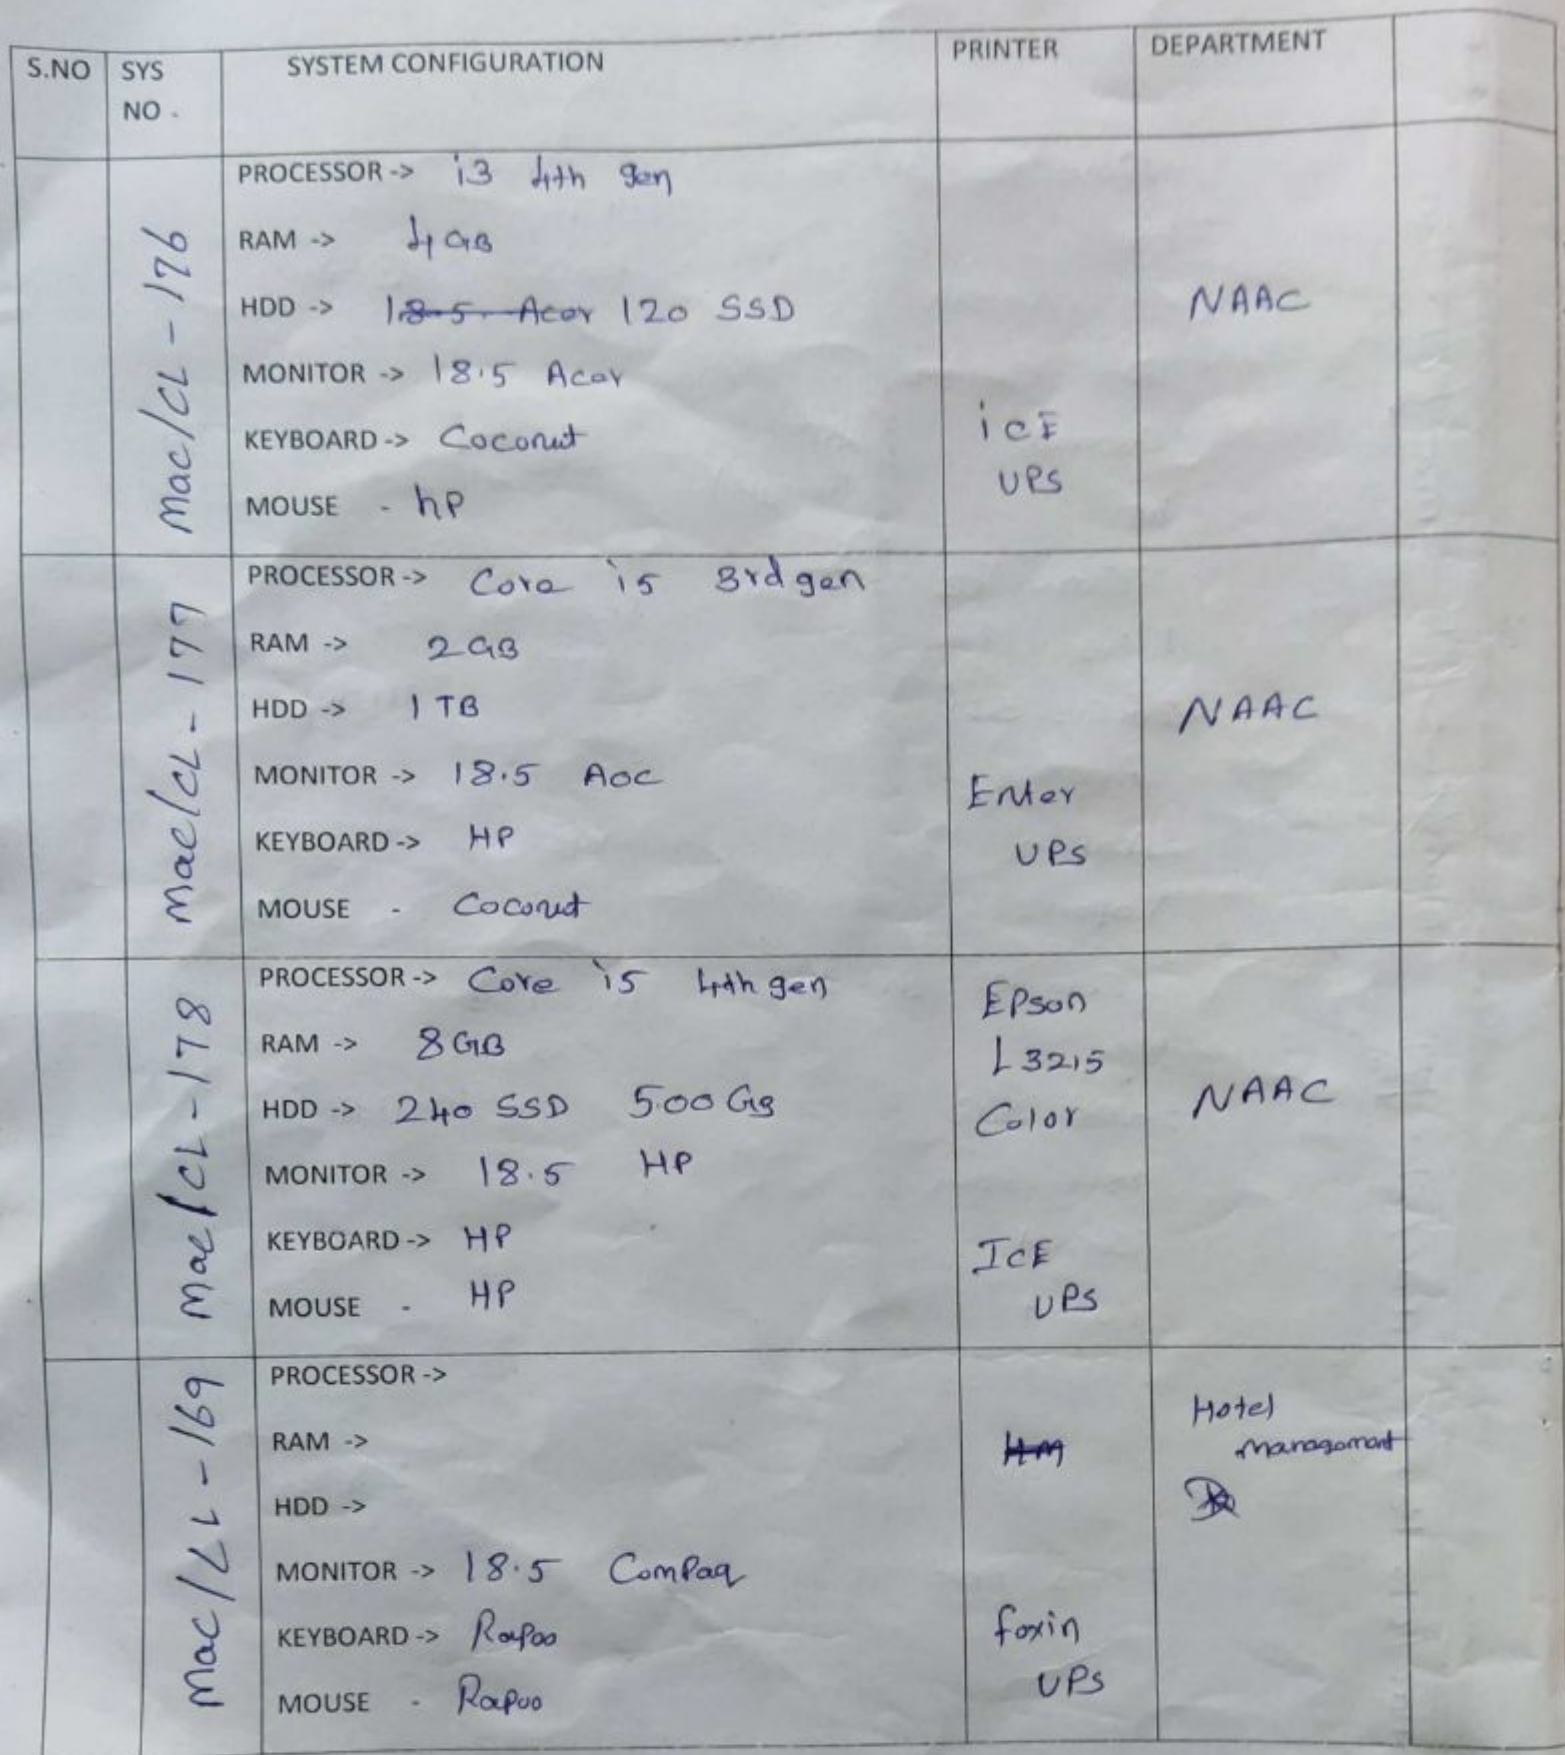 S.NO SYS NO. SYSTEM CONFIGURATION PRINTER DEPARTMENT
Mac/CL-176
PROCESSOR -> i3 4th gen
RAM -> 4 GB
HDD -> 18.5 Acer 120 SSD
MONITOR -> 18.5 Acer
KEYBOARD -> Coconut
MOUSE - hp
iCE
UPS
NAAC
Mac/CL-177
PROCESSOR -> Core i5 3rd gen
RAM -> 2 GB
HDD -> 1 TB
MONITOR -> 18.5 Aoc
KEYBOARD -> HP
MOUSE - Coconut
Enter
UPS
NAAC
Mac/CL-178
PROCESSOR -> Core i5 4th gen
RAM -> 8 GB
HDD -> 240 SSD 500 GB
MONITOR -> 18.5 HP
KEYBOARD -> HP
MOUSE - HP
EPson
L3215
Color
ICE
UPS
NAAC
Mac/LL-169
PROCESSOR ->
RAM ->
HDD ->
MONITOR -> 18.5 ComPaq
KEYBOARD -> Rapoo
MOUSE - Rapoo
HM
foxin
UPS
Hotel
Management